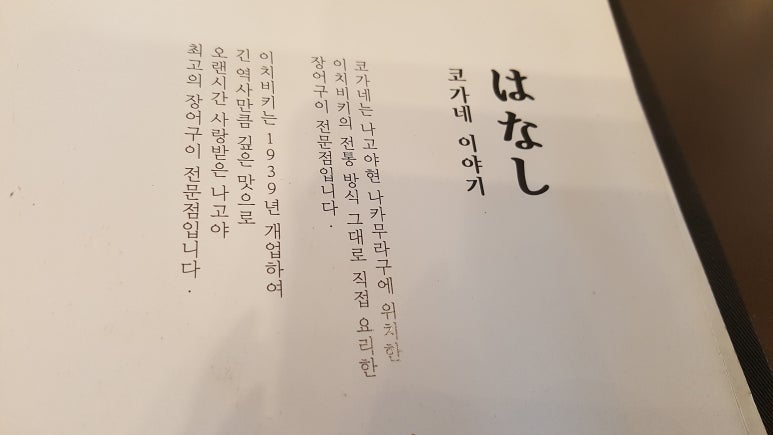 はなし
코가네 이야기
코가네는 나고야현 나카무라구에 위치한
이치비키의 전통 방식 그대로 직접 요리한
장어구이 전문점입니다.
이치비키는 1939년 개업하여
긴 역사만큼 깊은 맛으로
오랜시간 사랑받은 나고야
최고의 장어구이 전문점입니다.